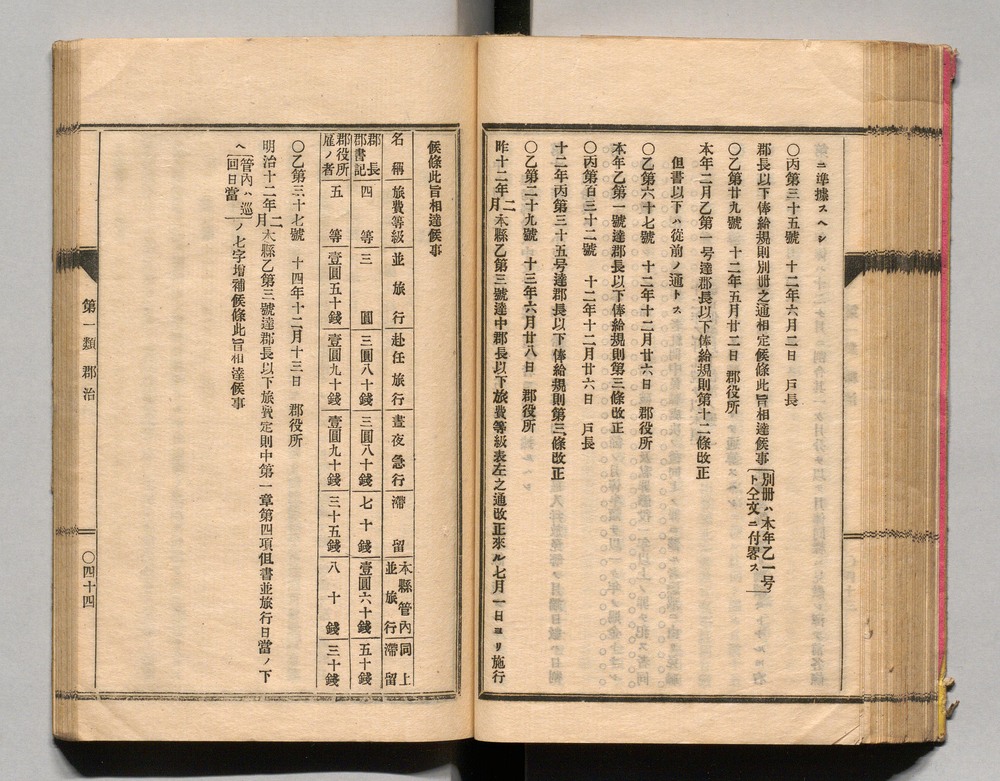 ニ準據スヘシ
〇丙第三十五號　十二年六月二日　戶長
郡長以下俸給規則別冊之通相定候條此旨相達候事（別冊ハ本年乙一号
ト仝文ニ付畧ス）
〇乙第廿九號　十二年五月廿二日　郡役所
本年二月乙第一号達郡長以下俸給規則第十二條改正
但書以下ハ從前ノ通トス
〇乙第六十七號　十二年十二月廿六日　郡役所
本年乙第一號達郡長以下俸給規則第三條改正
〇丙第百三十二號　十二年十二月廿六日　戶長
十二年丙第三十五号達郡長以下俸給規則第三條改正
〇乙第二十九號　十三年六月廿八日　郡役所
昨十二年二月本縣乙第三號達中郡長以下旅費等級表左之通改正來ル七月一日ヨリ施行
候條此旨相達候事
名稱　旅費等級　並旅行　赴任旅行　晝夜急行　滯留　本縣管內並旅行　同上滯留
郡長　郡書記　四等　三圓　三圓八十錢　三圓八十錢　七十錢　壹圓六十錢　五十錢
郡役所雇ノ者　五等　壹圓五十錢　壹圓九十錢　壹圓九十錢　三十五錢　八十錢　三十錢
〇乙第三十七號　十四年十二月十三日　郡役所
明治十二年二月本縣乙第三號達郡長以下旅費定則中第一章第四項但書並旅行日當ノ下
ヘ（管內ハ巡回日當）ノ七字增補候條此旨相達候事
第一類　郡治
〇四十四